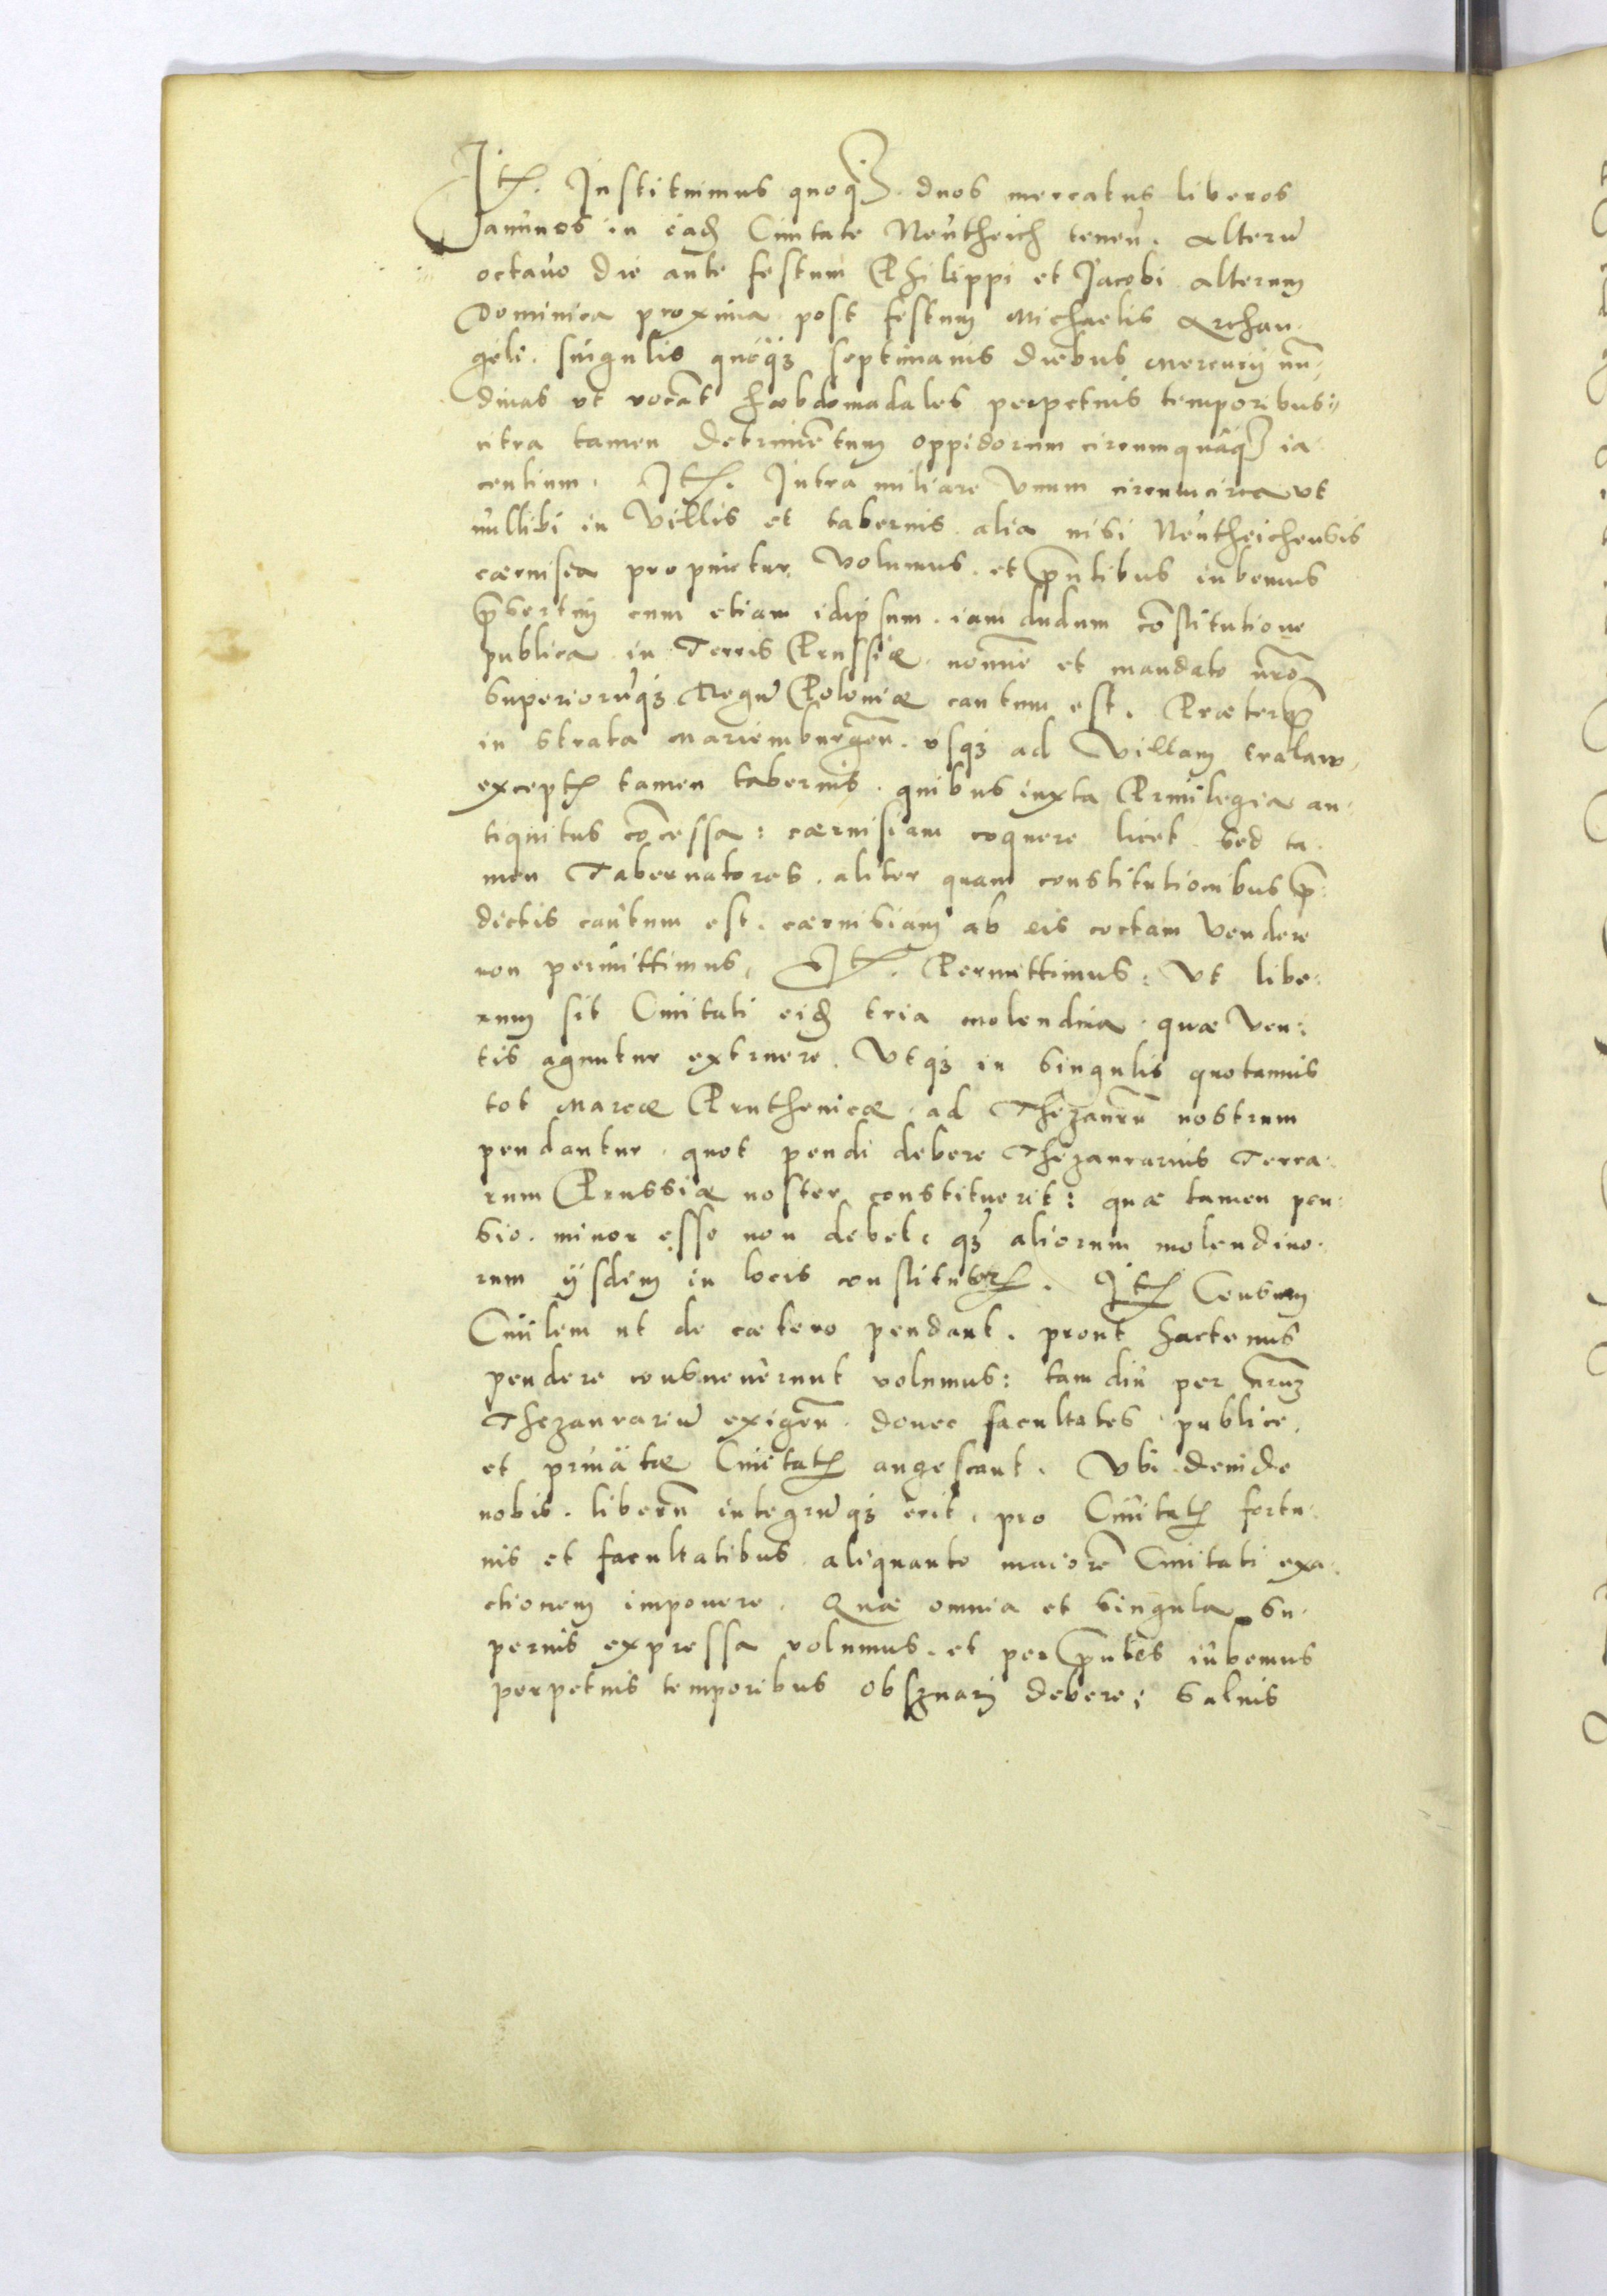 Itē. Instituimus quoq3 duos mercatus liberos
añuos in eadē Ciuitate Neuttheich tenen̄. alterū
octauo die ante festum Philippi et Jacobi alterum
Dominica proxima post festum Michaelis Archan-
geli. singulis quoq3 septimanis diebus Mercurij nū-
dinas ut vocāt hæbdomadales perpetuis temporibus:
citra tamen detrimētum oppidorum circumquaq3 ia-
centium. Itē. Intra miliare vnum circumcirca vt
nullibi in villis et tabernis alia nisi Neuttheichensis
cæruisia propinetur volumus. et p̄ntibus iubemus
p̄sertim cum etiam idipsum. iam dudum cōstitutione
publica in Terris Prussiæ. nomine et mandato nr̄o
Superiorūq3 Regū Poloniæ cautum est. Præterq̄
in strata Mariemburgen̄. vsq3 ad Villam tralaw,
exceptis tamen tabernis. quibus iuxta Priuilegia an-
tiquitus cōcessa: cæruisiam coquere licet. sed ta-
men Tabernatores. aliter quam constitutionibus p̄-
dictis cautum est. cæruisiam ab eis coctam vendere
non permittimus. Itē. Permittimus. Vt libe-
rum sit Ciuitati eidē tria molendina. quæ ven-
tis aguntur extruere. Vtq3 in singulis quotannis
tot Marcæ Pruthenicæ. ad Thezaurū nostrum
pendantur. quot pendi debere Thezaurarius Terra-
rum Prussiæ noster constituerit: quæ tamen pen-
sio. minor esse non debet. q3 aliorum molendino-
rum ijsdem in locis constitutorē. Itē Censum
Ciuilem ut de cætero pendant. prout hactenus
pendere consueuerunt volumus: tam diu per nr̄um
Thezaurariū exigen̄. donec facultates publice,
et priuatæ Ciuitatis augescant. Vbi deinde
nobis. liberū integrūq3 erit. pro Ciuitatis fortu-
nis et facultatibus aliquanto maiorē Ciuitati exa-
ctionem imponere. Quæ omnia et singula su-
perius expressa volumus. et per p̄ntes iubemus
perpetuis temporibus obseruarj debere; Saluis